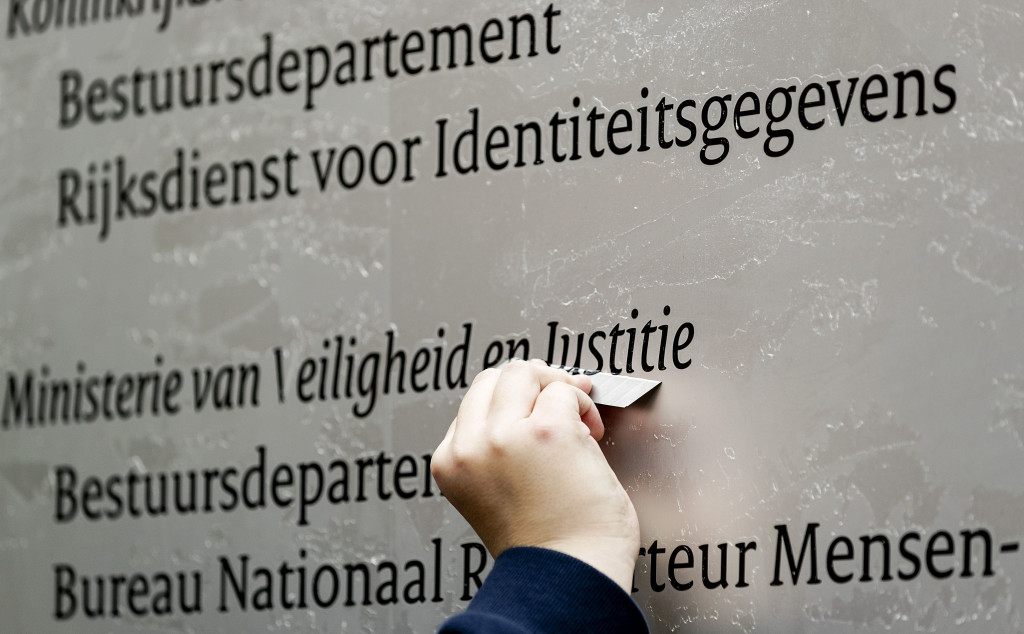 Bestuursdepartement
Rijksdienst voor Identiteitsgegevens
Ministerie van \ eiligheid en Justitie
Bestuursdeparte
Bureau Nationaal R rteur Mensen-